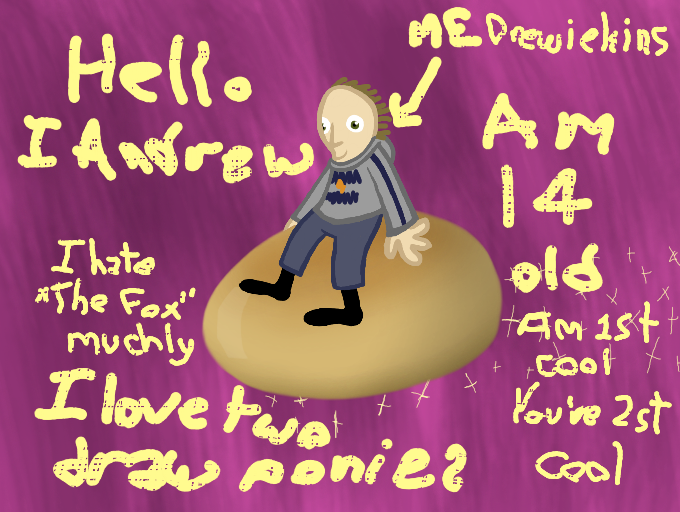 Hello
I Andrew
ME Drewiekins
Am
14
old
Am 1st
cool
You're 2st
cool
I hate
"The Fox"
muchly
I love two
draw ponies